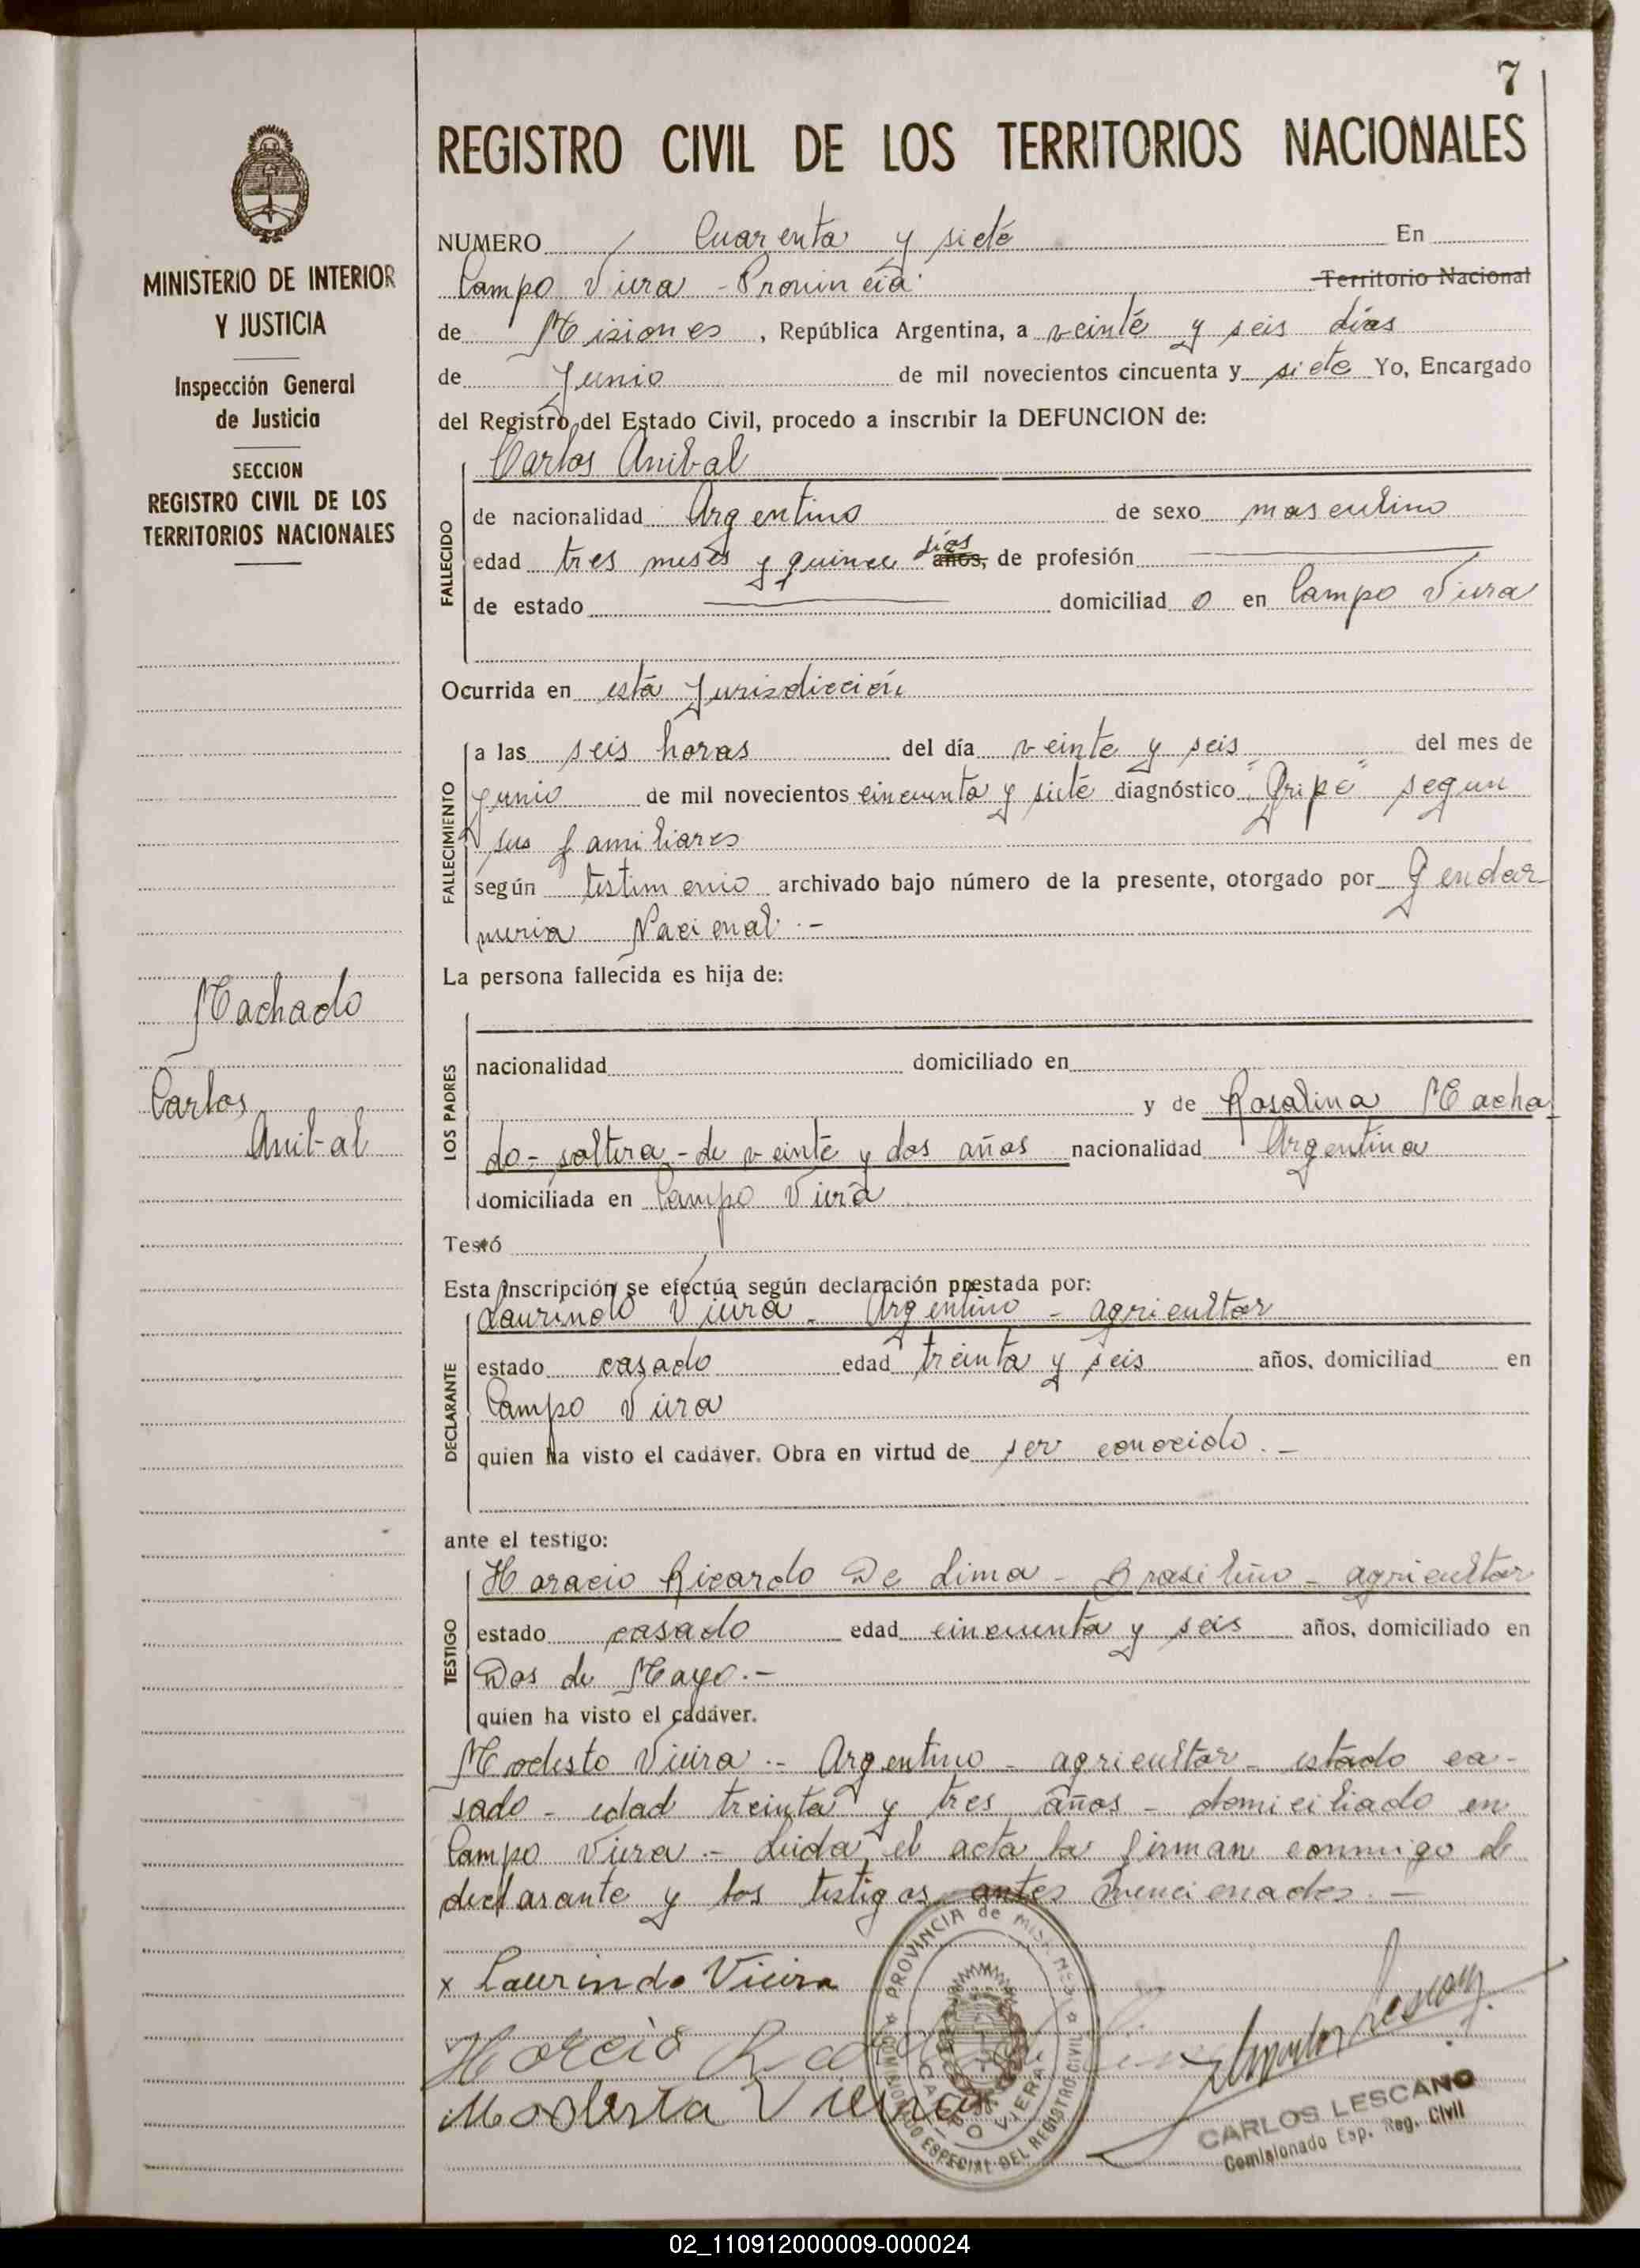 7
REGISTRO CIVIL DE LOS TERRITORIOS NACIONALES
MINISTERIO DE INTERIOR
Y JUSTICIA
Inspección General
de Justicia
SECCION
REGISTRO CIVIL DE LOS
TERRITORIOS NACIONALES
Machado
Carlos
Anibal
NUMERO Cuarenta y siete En
Campo Viera - Provincia Territorio Nacional
de Misiones, República Argentina, a veinte y seis días
de Junio de mil novecientos cincuenta y siete Yo, Encargado
del Registro del Estado Civil, procedo a inscribir la DEFUNCION de:
FALLECIDO
Carlos Anibal
de nacionalidad Argentino de sexo masculino
edad tres meses y quince días años, de profesión
de estado domiciliad o en Campo Viera
Ocurrida en esta Jurisdicción
FALLECIMIENTO
a las seis horas del día veinte y seis del mes de
Junio de mil novecientos cincuenta y siete diagnóstico "Gripe" segun
sus familiares
según testimonio archivado bajo número de la presente, otorgado por Gendar
meria Nacional.-
La persona fallecida es hija de:
LOS PADRES
nacionalidad domiciliado en
y de Rosalina Macha
do - soltera - de veinte y dos años nacionalidad Argentina
domiciliada en Campo Viera
Testó
Esta inscripción se efectúa según declaración prestada por:
DECLARANTE
Laurindo Vieira - Argentino - agricultor
estado casado edad treinta y seis años, domiciliad en
Campo Viera
quien ha visto el cadáver. Obra en virtud de ser conocido.-
ante el testigo:
TESTIGO
Horacio Ricardo De Lima - Brasileño - agricultor
estado casado edad cincuenta y seis años, domiciliado en
Dos de Mayo.-
quien ha visto el cadáver.
Modesto Vieira.- Argentino - agricultor - estado ca-
sado - edad treinta y tres años - domiciliado en
Campo Viera.- Leida el acta la firman conmigo el
declarante y los testigos antes mencionados.-
x Laurindo Vieira
PROVINCIA de MISIONES
COMISIONADO ESPECIAL DEL REGISTRO CIVIL
CAMPO VIERA
CARLOS LESCANO
Comisionado Esp. Reg. Civil
02_110912000009-000024